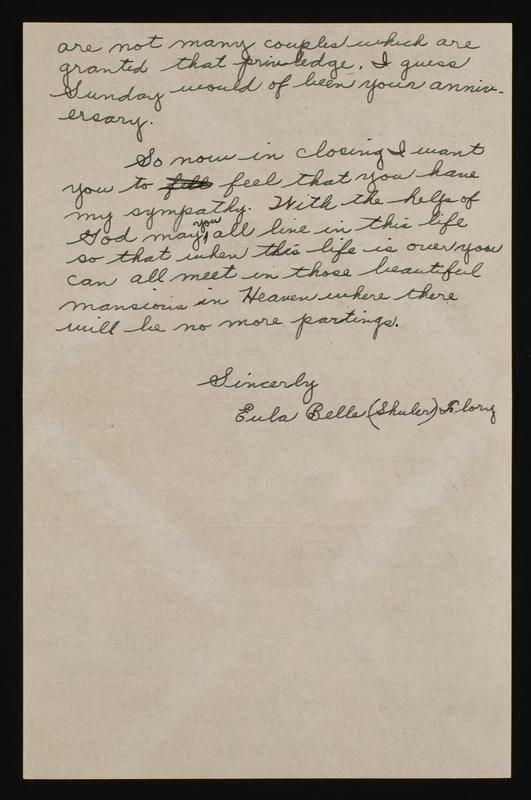 are not many couples which are
granted that priviledge. I guess
Sunday would of been your anniv-
ersary.
So now in closing I want
you to fill feel that you have
my sympathy. With the help of
God may you all live in this life
so that when this life is over you
can all meet in those beautiful
mansions in Heaven where there
will be no more partings.
Sincerly
Eula Belle (Shuler) Flory